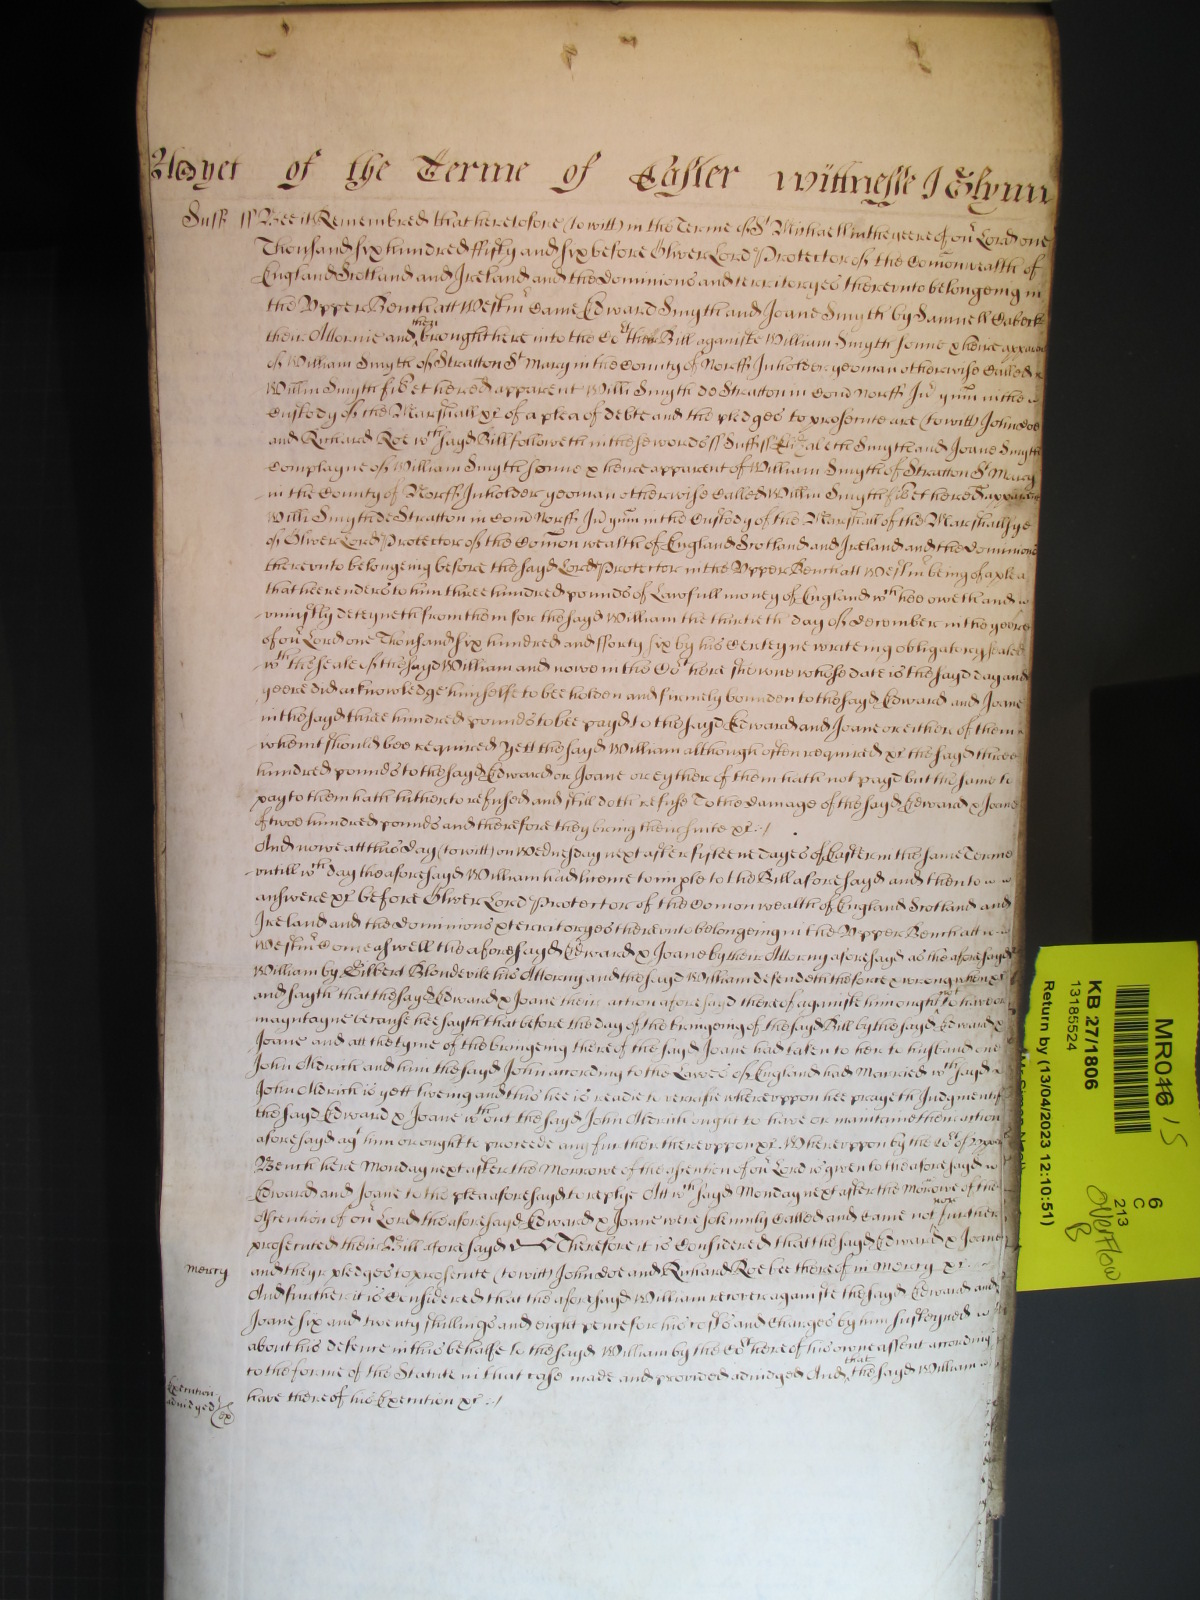 As yet of the Terme of Easter wittnesse J Glynn
Suff ss Bee it Remembred that heretofore (to witt) in the Terme of St Michaell in the yeere of our Lord one
Thousand syx hundred ffifty and syx before Oliver Lord Protector of the Comonwealth of
England Scotland and Ireland and the Dominions and territoryes therevnto belongeing in
the Vpper Bench att Westmr Came Edward Smyth and Joane Smyth by Samuell
their Attornie and then brought here into the Cort their Bill againste William Smyth sonne & heire apparant
of William Smyth of Stratton St Mary in the County of Norff Inholder yeoman otherwise Called
Willm Smyth fil et hered apparent Willi Smyth de Stratton in Com Norff in the
Custody of the Marshall &c of a plea of debte and the pledges to prosecute are (to witt) John doe
and Richard Roe wch sayd Bill followeth in these words ss Suff ss Smyth and Joane Smyth
Complayne of William Smyth sonne & heire apparent of William Smyth of Stratton St Mary
in the County of Norff Inholder yeoman otherwise Called Willm Smyth fil et hered apparant
Willi Smyth de Stratton in Com Norff in the Custody of the Marshall of the Marshallsye
of Oliver Lord Protector of the Comon wealth of England Scotland and Ireland and the Dominions
therevnto belongeing before the sayd Lord Protector in the Vpper Bench att Westmr being of a plea
that hee render to him three hundred pounds of Lawfull money of England wch hee oweth and
vniustly deteyneth from them for the sayd William the thirtieth day of December in the yeere
of our Lord one Thousand syx hundred and fforty syx by his Certeyne writeing obligatory sealed
wth the seale of the sayd William and nowe in the Cort here shewne whose date is the sayd day and
yeere did acknowledge himselfe to bee holden and firmely bounden to the sayd Edward and Joane
in the sayd three hundred pounds to bee payd to the sayd Edward and Joane or either of them
when it should bee required yett the sayd William although often required &c the sayd three
hundred pounds to the sayd Edward or Joane or eyther of them hath not payd but the same to
pay to them hath hitherto refused and still doth refuse To the damage of the sayd Edward & Joane
of twoe hundred pounds and therefore they bring theire suite &c
And nowe att this day (to witt) on Wednesday next after fifteene dayes of Easter in the same Terme
vntill wch day the aforesayd William had licence to imple to the Bill aforesayd and then to
answere &c before Oliver Lord Protector of the Comonwealth of England Scotland and
Ireland and the Dominions & territoryes therevnto belongeing in the Vpper Bench att
Westmr Come aswell the aforesayd Edward & Joane by their Attorny aforesayd as the aforesayd
William by Gilbert Blondevile his Attorny and the sayd William defendeth the force & wrong when &c
and sayth that the sayd Edward & Joane their action aforesayd thereof againste him ought not to have or
mayntayne because hee sayth that before the day of the bringeing of the sayd Bill by the sayd Edward &
Joane and att the tyme of the bringeing thereof the sayd Joane had taken to her to husband one
John Aldrich and him the sayd John according to the Lawes of England had Married wch sayd
John Aldrich is yett liveing and this hee is readie to verrifie wherevppon hee prayeth Judgment if
the sayd Edward & Joane wthout the sayd John Aldrich ought to have or maintaine their action
aforesayd agt him or ought to proceede any further therevppon &c Wherevppon by the Cort of Vpper
Bench here Monday next after the Morrowe of the Ascention of our Lord is given to the aforesayd
Edward and Joane to the plea aforesayd to replye Att wch sayd Monday next after the Morrowe of the
Ascention of our Lord the aforesayd Edward & Joane were solemnly Called and Came not nor further
prosecuted their Bill aforesayd Therefore it is Considered that the sayd Edward & Joane
Mercy and theyr pledges to prosecute (to witt) John doe and Richard Roe bee thereof in Mercy &c
And further it is Considered that the aforesayd William recover againste the sayd Edward and
Joane six and twenty shillings and eight pence for his costs and Charges by him susteyned
about his defence in this behalfe to the sayd William by the Cort here of his owne assent according
to the forme of the Statute in that case made and provided adiudged And that the sayd William
Execution adiudged have thereof his Execution &c
MR016 15
KB 27/1806
13185524
Return by (13/04/2023 12:10:51)
6
C
213
overflow
B